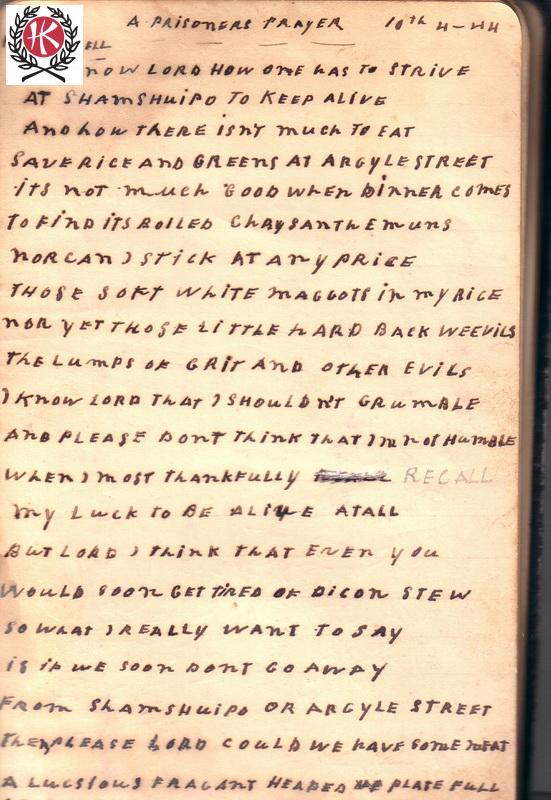 A PRISONERS PRAYER 10th 4-44
ELL
NOW LORD HOW ONE HAS TO STRIVE
AT SHAMSHUIPO TO KEEP ALIVE
AND HOW THERE ISN'T MUCH TO EAT
SAVE RICE AND GREENS AT ARGYLE STREET
ITS NOT MUCH GOOD WHEN DINNER COMES
TO FIND ITS BOILED CHRYSANTHEMUNS
NOR CAN I STICK AT ANY PRICE
THOSE SOFT WHITE MAGGOTS IN MY RICE
NOR YET THOSE LITTLE HARD BACK WEEVILS
THE LUMPS OF GRIT AND OTHER EVILS
I KNOW LORD THAT I SHOULDN'T GRUMBLE
AND PLEASE DONT THINK THAT IM NOT HUMBLE
WHEN I MOST THANKFULLY RECALL
MY LUCK TO BE ALIVE ATALL
BUT LORD I THINK THAT EVEN YOU
WOULD SOON GET TIRED OF DICON STEW
SO WHAT I REALLY WANT TO SAY
IS IF WE SOON DONT GO AWAY
FROM SHAMSHUIPO OR ARGYLE STREET
THEN PLEASE LORD COULD WE HAVE SOME MEAT
A LUCSIOUS FRAGANT HEAPED PLATE FULL